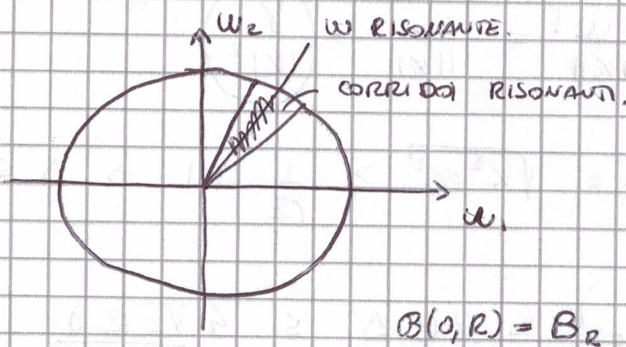 ω₂
ω RISONANTE.
CORRIDOI RISONANTI.
ω₁
B(0,R) = B_R